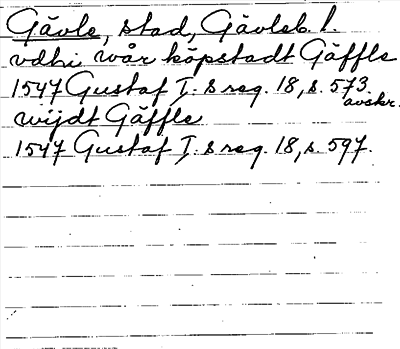 Gävle, stad, Gävleb. l.
vdhi wår köpstadt Gäffle
1547 Gustaf I:s reg. 18, s. 573.
avskr.
wijdt Gäffle
1547 Gustaf I:s reg. 18, s. 597.